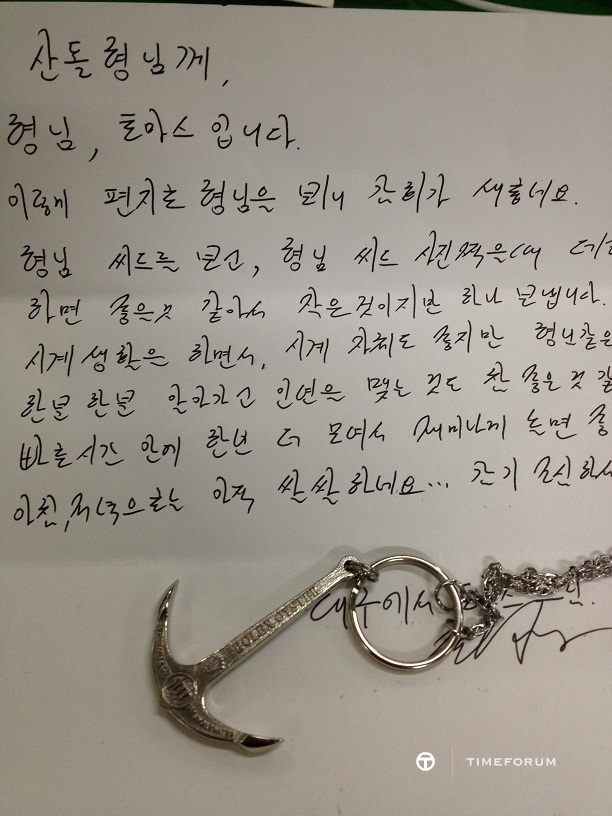 산돌 형님께,
형님, 토마스 입니다.
이렇게 편지로 형님을 뵈니 감회가 새롭네요.
형님 씨드를 보고, 형님 씨드 사진찍을때
하면 좋은것 같아서 작은것이지만 하나 보냅니다.
시계생활은 하면서, 시계 자체도 좋지만 형님같은
한분 한분 알아가고 인연을 맺는 것도 참 좋은 것
빠른시간 안에 한번 더 모여서 재미나게 놀면
아침,저녁으로는 아직 쌀쌀하네요... 감기 조심하
대구에서
ROLEX OYSTER
TIMEFORUM